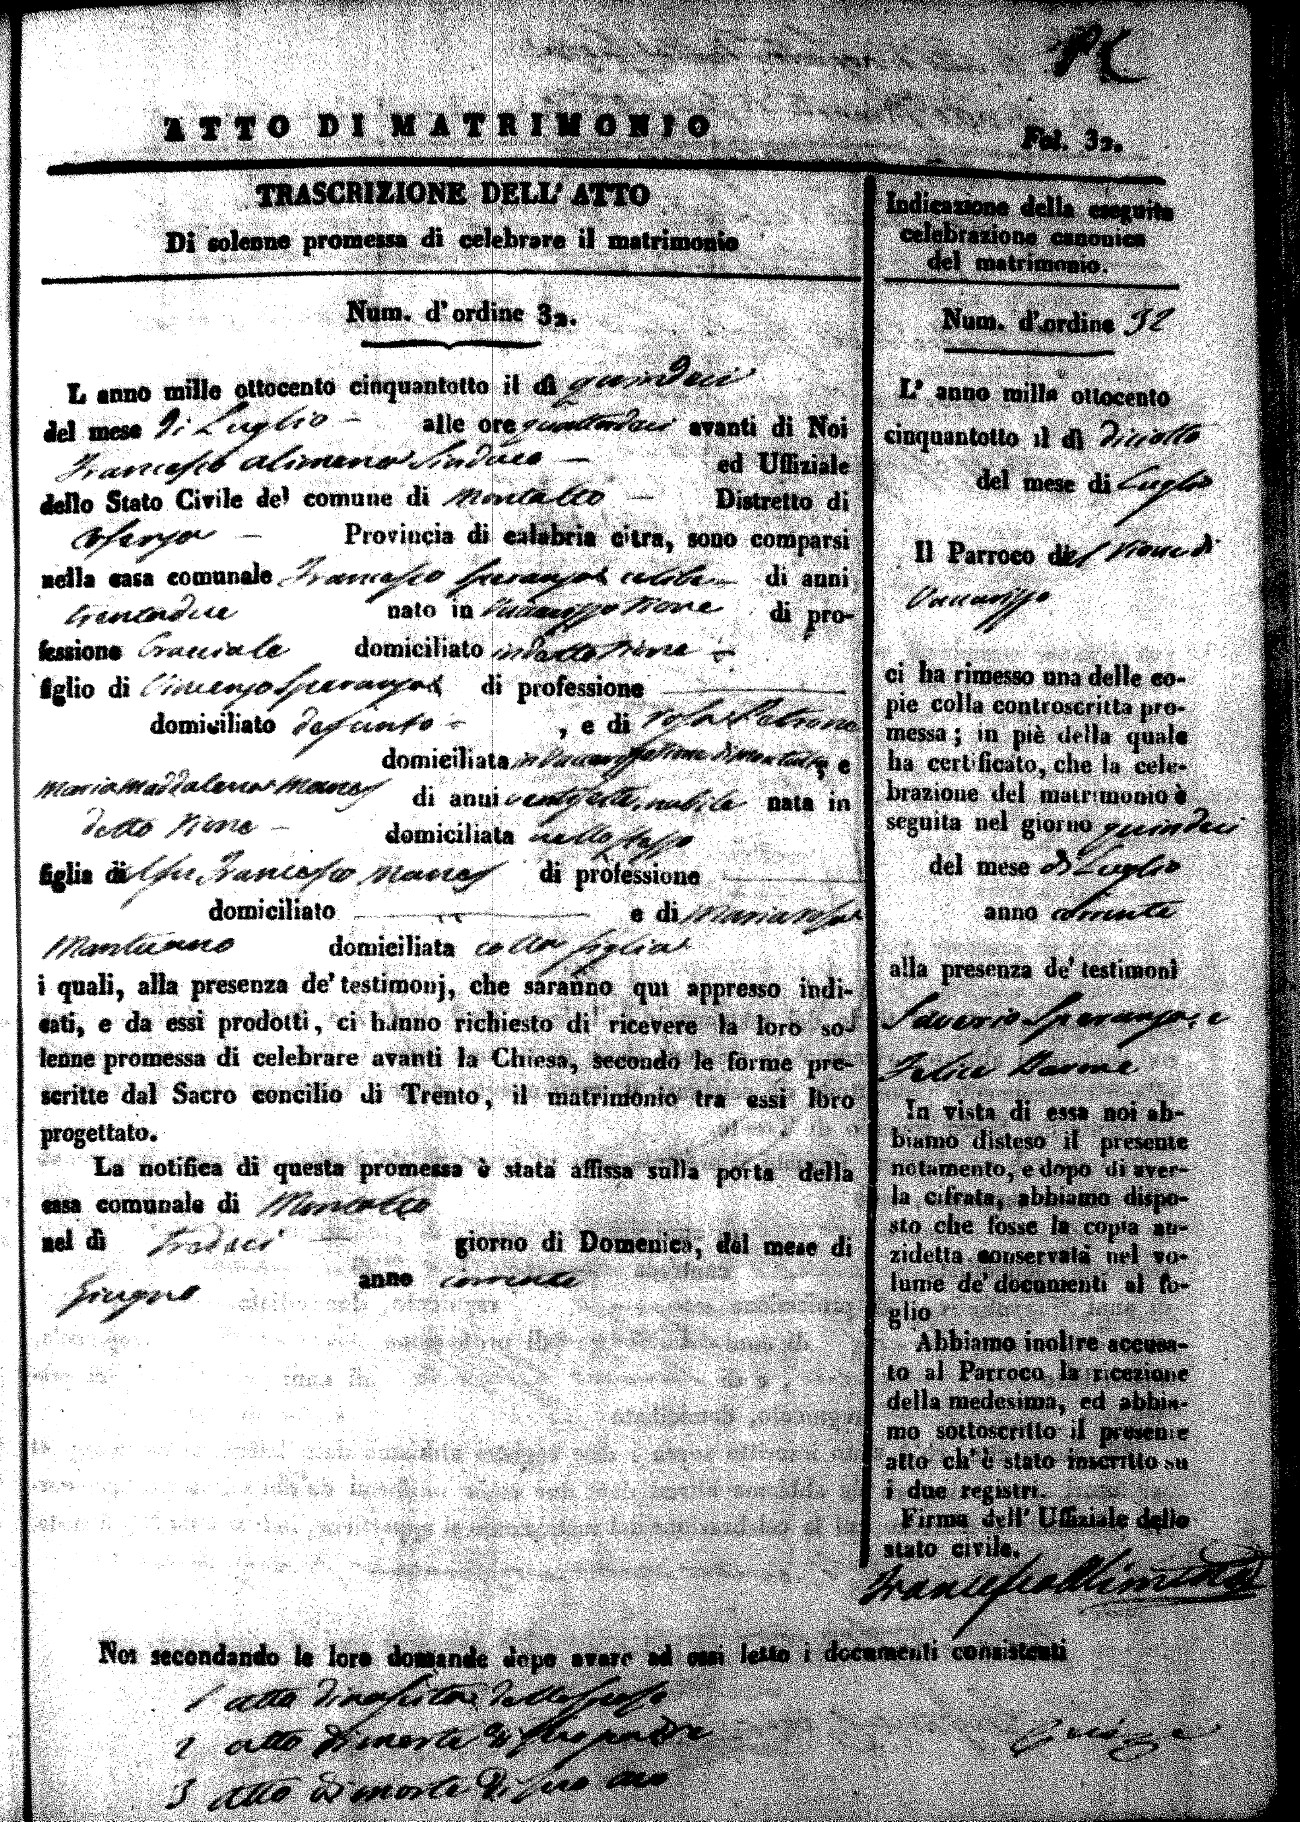 ATTO DI MATRIMONIO
Fol. 32.
TRASCRIZIONE DELL' ATTO
Di solenne promessa di celebrare il matrimonio
Num. d'ordine 32.
L anno mille ottocento cinquantotto il dì quindeci
del mese di Luglio alle ore quattordeci avanti di Noi
Francesco Alimena Sindaco ed Uffiziale
dello Stato Civile del comune di Montalto Distretto di
Cosenza Provincia di calabria citra, sono comparsi
nella casa comunale Francesco Speranza celibe di anni
trentadue nato in Vaccarizzo Rione di pro-
fessione Bracciale domiciliato in detto Rione
figlio di Vincenzo Speranza di professione
domiciliato defunto , e di Rosa Petrone
domiciliata in Vaccarizzo Rione di Montalto, e
Maria Maddalena di anni ventisette, nubile nata in
detto Rione domiciliata nello stesso
figlia di Francesco di professione
domiciliato e di Maria Rosa
domiciliata colla figlia
i quali, alla presenza de' testimonj, che saranno qui appresso indi-
cati, e da essi prodotti, ci hanno richiesto di ricevere la loro so-
lenne promessa di celebrare avanti la Chiesa, secondo le forme pre-
scritte dal Sacro concilio di Trento, il matrimonio tra essi loro
progettato.
La notifica di questa promessa è stata affissa sulla porta della
casa comunale di Montalto
nel dì Tredeci giorno di Domenica, del mese di
Giugno anno corrente
Noi secondando le loro domande dopo avere ad essi letto i documenti consistenti
1 atto di nascita dello sposo
2 atto di morte di suo padre
3 atto di morte di suo avo
Indicazione della eseguita
celebrazione canonica
del matrimonio.
Num. d'ordine 32
L' anno mille ottocento
cinquantotto il dì diciotto
del mese di Luglio
Il Parroco del Rione di
Vaccarizzo
ci ha rimesso una delle co-
pie colla controscritta pro-
messa; in piè della quale
ha certificato, che la cele-
brazione del matrimonio è
seguita nel giorno quindeci
del mese di Luglio
anno corrente
alla presenza de' testimoni
Saverio Speranza, e
Felice
In vista di essa noi ab-
biamo disteso il presente
notamento, e dopo di aver-
la cifrata, abbiamo dispo-
sto che fosse la copia an-
zidetta conservata nel vo-
lume de' documenti al fo-
glio
Abbiamo inoltre accusa-
to al Parroco la ricezione
della medesima, ed abbia-
mo sottoscritto il presente
atto ch' è stato inscritto su
i due registri.
Firma dell' Uffiziale dello
stato civile.
Francesco Alimena